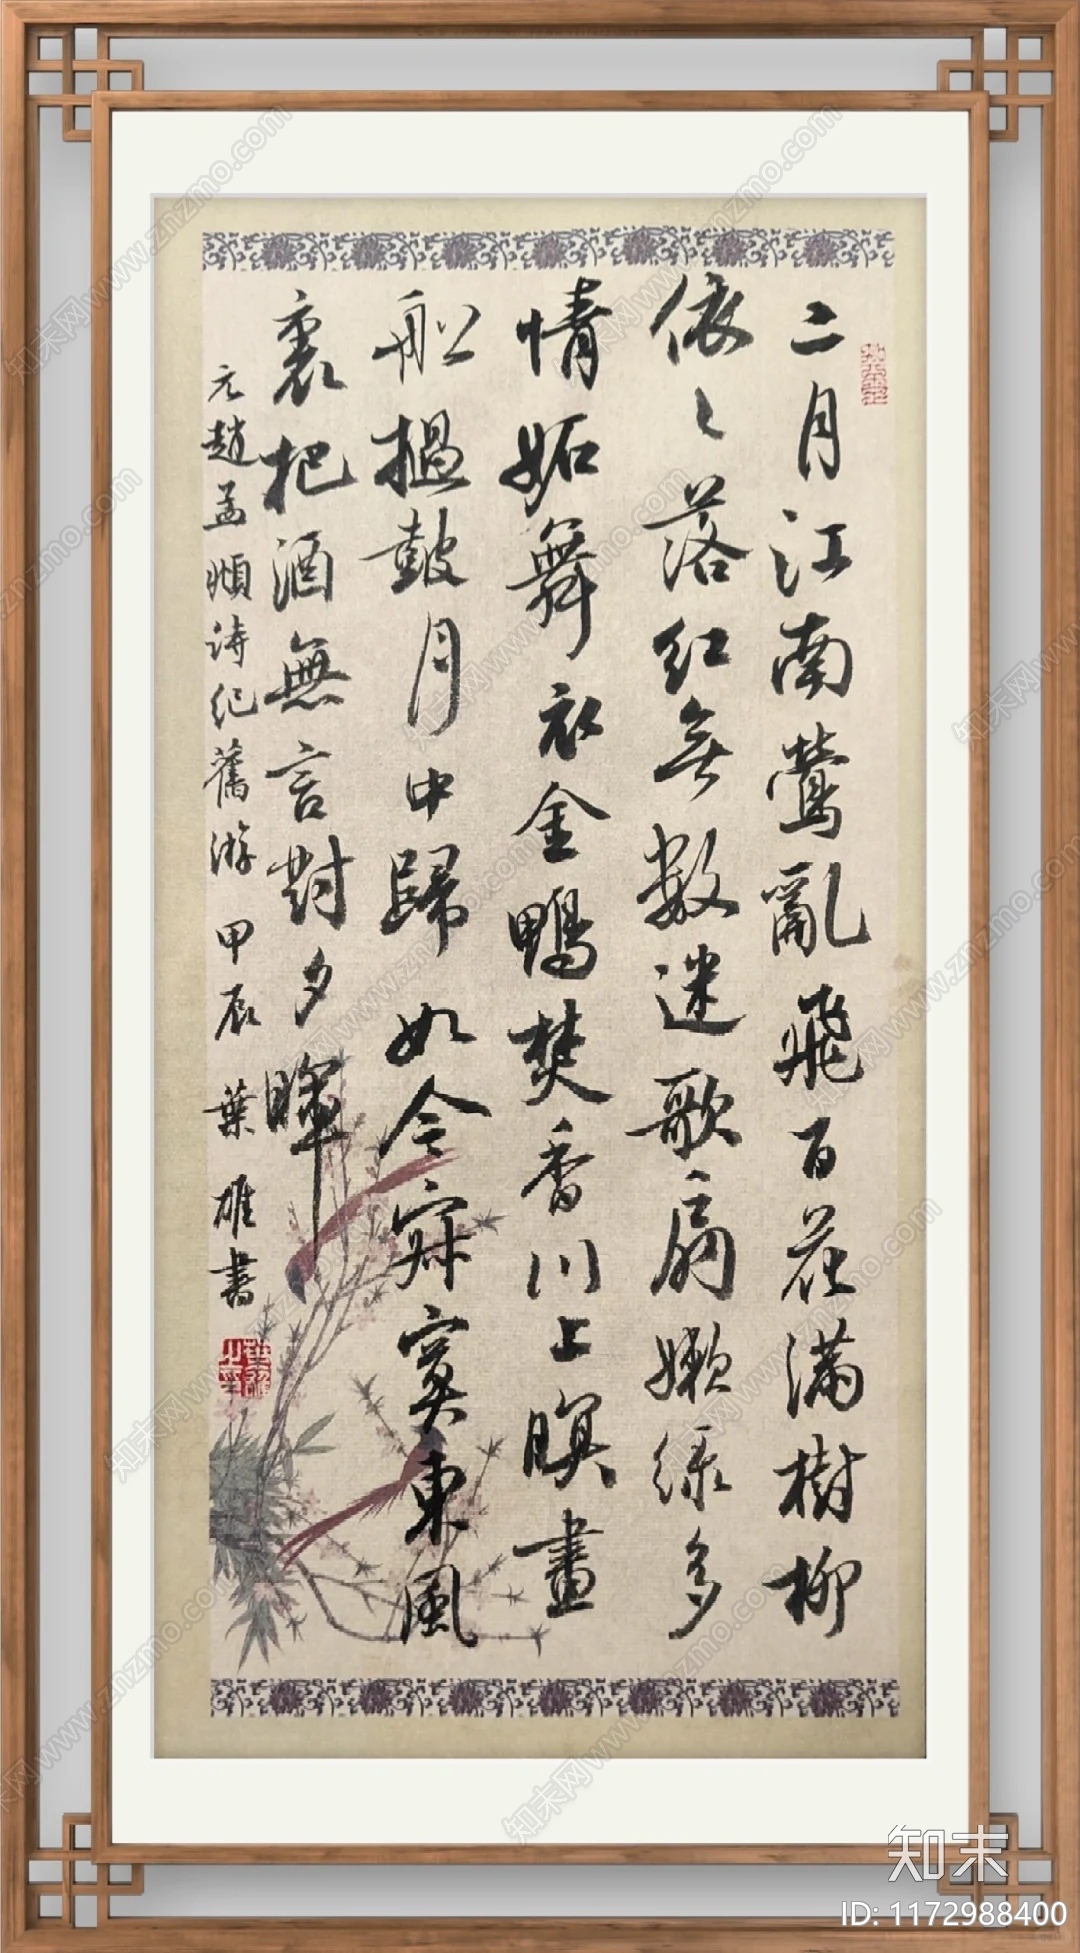 二月江南鶯亂飛百花滿樹柳
依〻落紅無數迷歌扇嫩綠多
情妬舞衣金鴨焚香川上暝畫
船撾鼓月中歸如今寂寞東風
裏把酒無言對夕暉
元趙孟頫詩紀舊游 甲辰 葉雄書
知末
ID: 1172988400
知末网www.znzmo.com